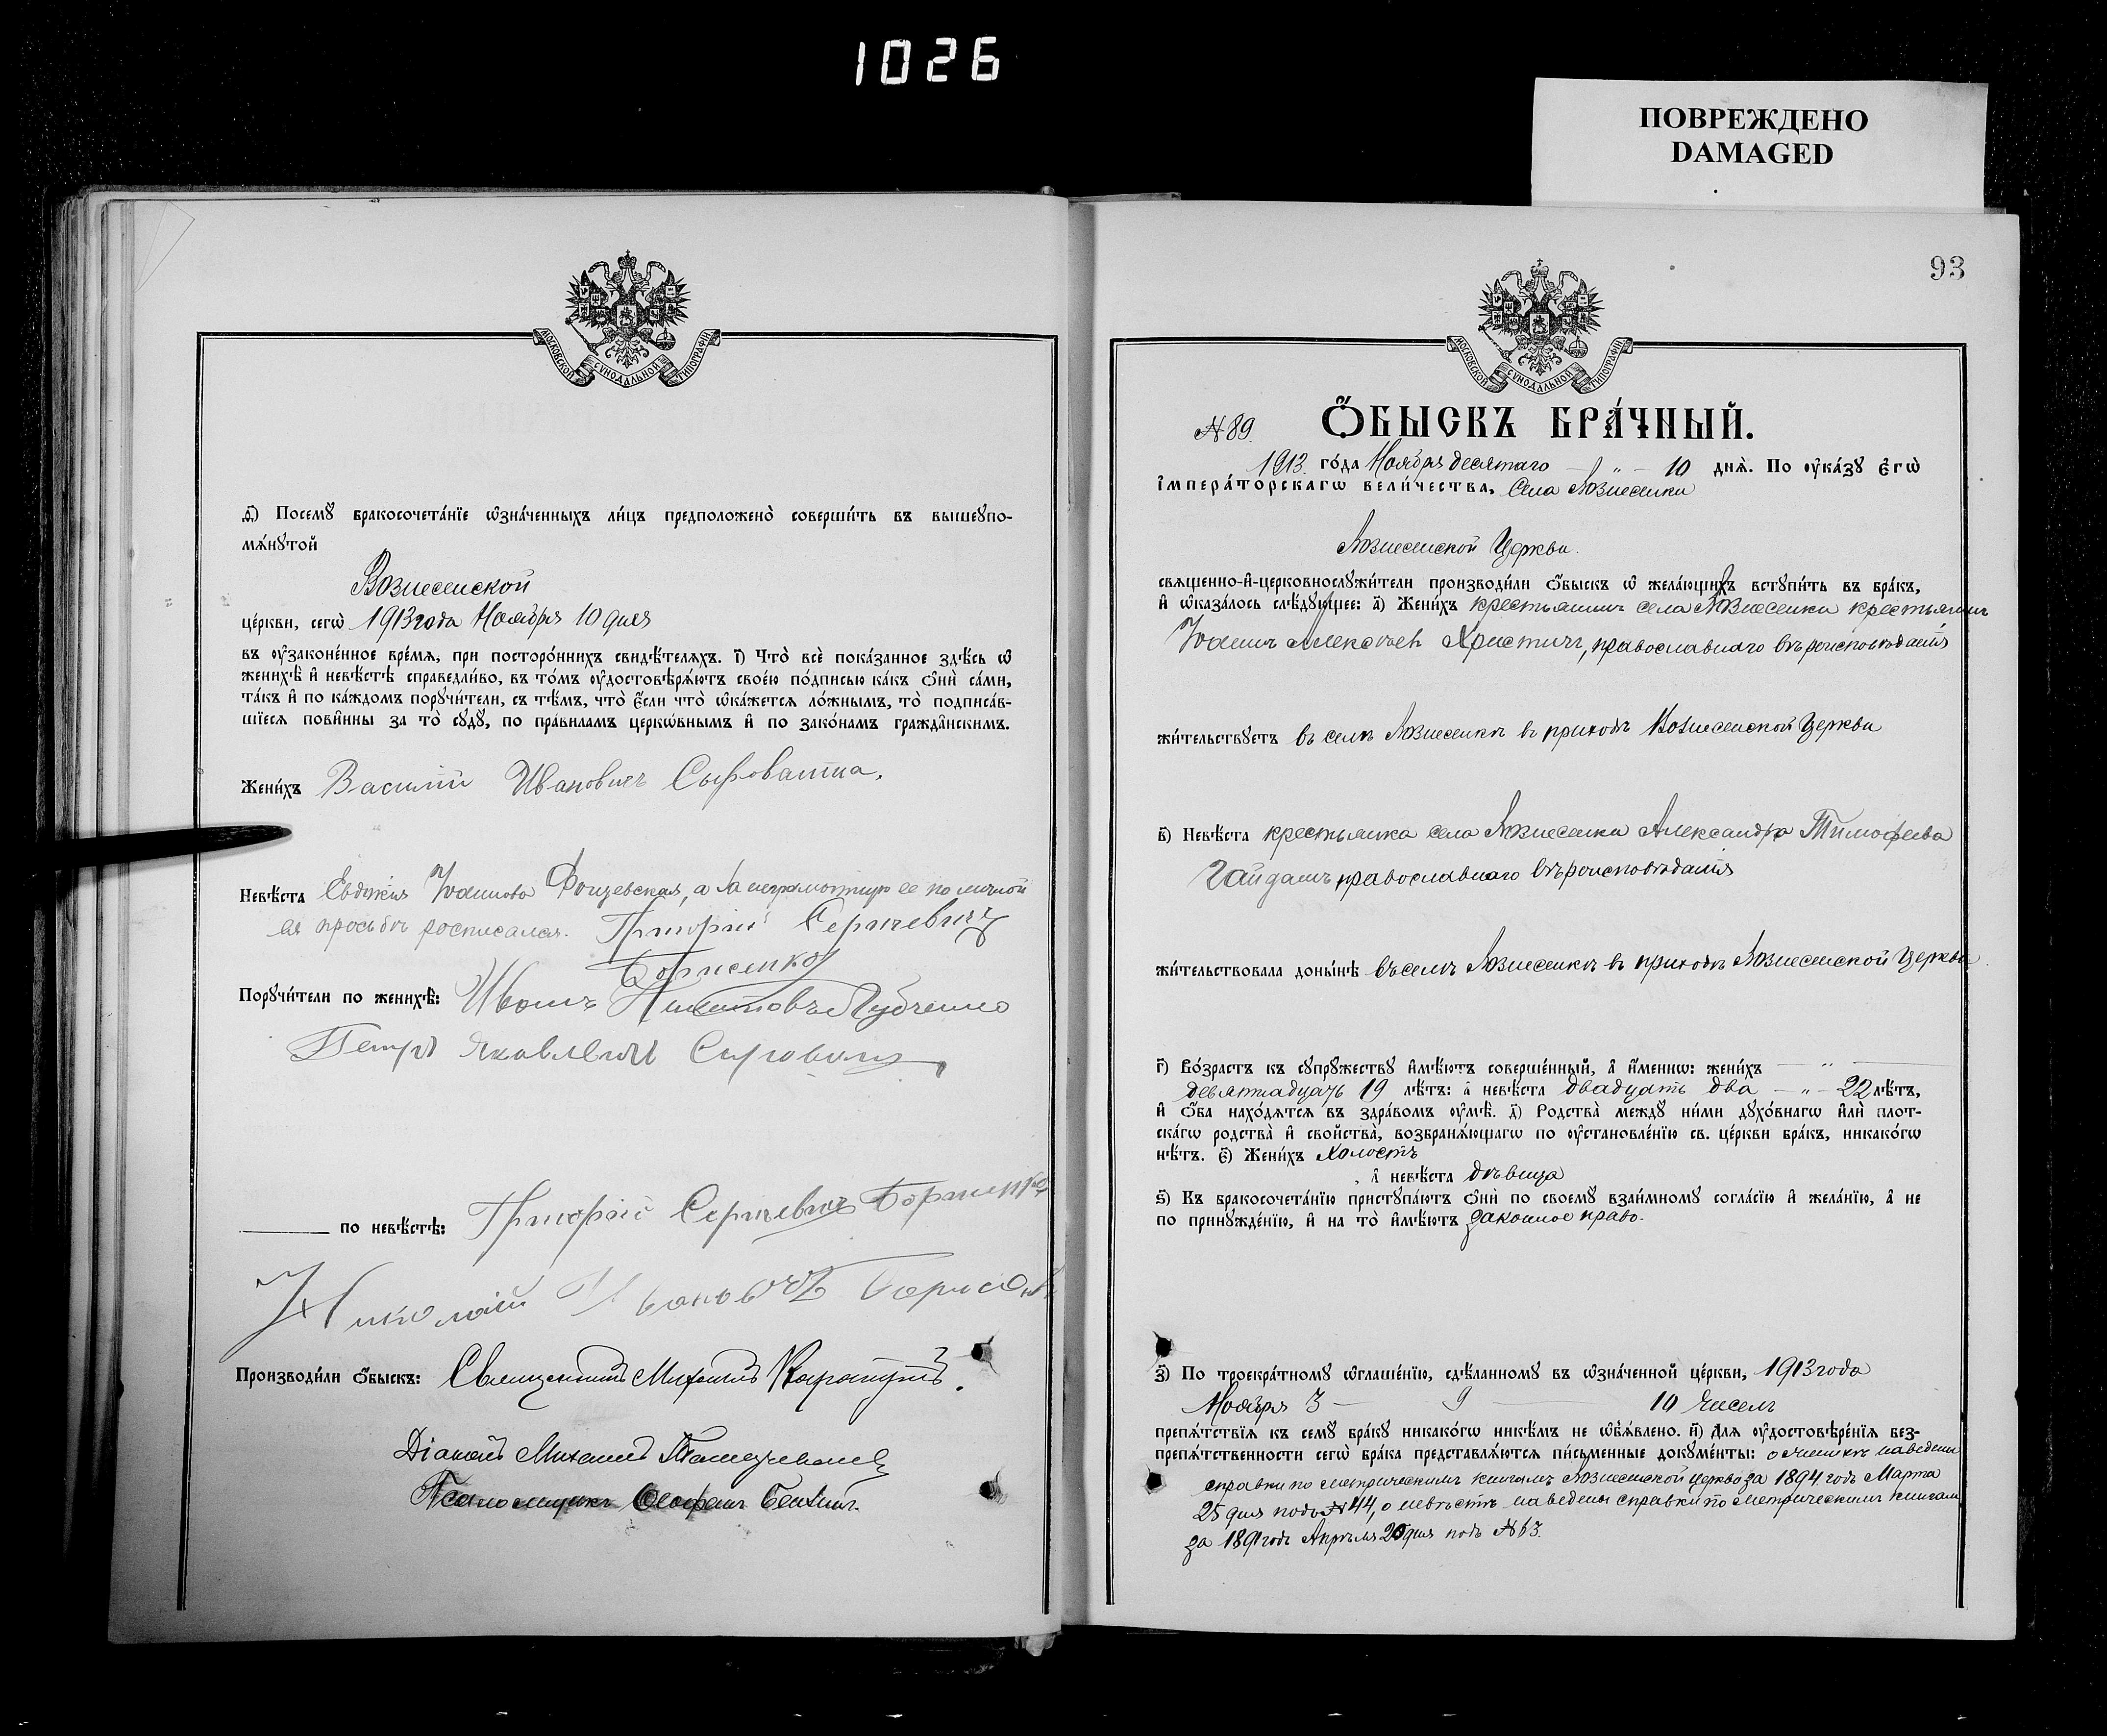 1026
ПОВРЕЖДЕНО
DAMAGED
МОСКОВСКОЙ СУНОДАЛЬНОЙ ТИПОГРАФІИ
ѳ҃) Посемꙋ бракосочета́нїе ѡ҆зна́ченныхъ ли́цъ предположено̀ соверши́ть въ вышеꙋпо-
мѧ́нꙋтой
Вознесенской
це́ркви, сегѡ̀ 1913 года Ноября 10 дня
въ ᲂу҆законе́нное вре́мѧ, при посторо́ннихъ свидѣ́телѧхъ. і҃) Что̀ всѐ пока́занное здѣ́сь ѡ҆
женихѣ̀ и҆ невѣ́стѣ справедли́во, въ то́мъ ᲂу҆достовѣрѧ́ютъ свое́ю по́дписью ка́къ ѻ҆нѝ са́ми,
та́къ и҆ по ка́ждомъ порꙋчи́тели, съ тѣ́мъ, что̀ є҆́сли что̀ ѡ҆ка́жетсѧ ло́жнымъ, то̀ подписа́в-
шїесѧ пови́нны за то̀ сꙋдꙋ̀, по пра́виламъ церкѡ́внымъ и҆ по зако́намъ гражда́нскимъ.
Жени́хъ Василій Ивановичъ Сыроватка.
Невѣ́ста Евдокія Іоаннова а за неграмотную ее по личной
ея просьбѣ росписался. Григорий Сергиевичъ
Борисенко
Порꙋчи́тели по женихѣ̀: Иванъ
Петръ Яковлевичъ
по невѣ́стѣ: Григорій Сергиевичъ Борисенко
Николай Ивановичъ
Производи́ли ѻ҆́быскъ: Священникъ Михаилъ
Діаконъ Михаилъ
Псаломщикъ Ѳеофанъ
93
МОСКОВСКОЙ СУНОДАЛЬНОЙ ТИПОГРАФІИ
№ 89. Ѻ҆́БЫСКЪ БРА́ЧНЫЙ.
1913. го́да Ноября десятаго — " — 10 днѧ̀. По ᲂу҆ка́зꙋ є҆гѡ̀
і҆мпера́торскагѡ вели́чества, Села Вознесенки
Вознесенской Церкви.
свѧщенно-и҆-церковнослꙋжи́тели производи́ли ѻ҆́быскъ ѡ҆ жела́ющихъ встꙋпи́ть въ бра́къ,
и҆ ѡ҆каза́лось слѣ́дꙋющее: а҃) Жени́хъ крестьянинъ села Вознесенки крестьянинъ
Іоаннъ Алексѣевъ Христичъ, православнаго вѣроисповѣданія
жи́тельствꙋетъ въ селѣ Вознесенкѣ въ приходѣ Вознесенской Церкви
в҃) Невѣ́ста крестьянка села Вознесенки Александра Тимофеева
Гайдашъ православнаго вѣроисповѣданія
жи́тельствовала доны́нѣ въ селѣ Вознесенкѣ въ приходѣ Вознесенской Церкви.
г҃) Во́зрастъ къ сꙋпрꙋ́жествꙋ и҆мѣ́ютъ соверше́нный, а҆ и҆́меннѡ: жени́хъ — " —
девятнадцать 19 лѣ́тъ: а҆ невѣ́ста двадцать два — " — 22 лѣ́тъ,
и҆ ѻ҆́ба нахо́дѧтсѧ въ здра́вомъ ᲂу҆мѣ̀. д҃) Родства̀ междꙋ ни́ми дꙋхо́внагѡ и҆лѝ плот-
ска́гѡ родства̀ и҆ свойства̀, возбранѧ́ющагѡ по ᲂу҆становле́нїю св. це́ркви бра́къ, никако́гѡ
нѣ́тъ. є҃) Жени́хъ холостъ
, а҆ невѣ́ста дѣвица
ѕ҃) Къ бракосочета́нїю пристꙋпа́ютъ ѻ҆нѝ по своемꙋ̀ взаи́мномꙋ согла́сїю и҆ жела́нїю, а҆ не
по принꙋжде́нїю, и҆ на то̀ и҆мѣ́ютъ законное право.
з҃) По троекра́тномꙋ ѡ҆глаше́нїю, сдѣ́ланномꙋ въ ѡ҆зна́ченной це́ркви, 1913 года
Ноября 3 — 9 — 10 чиселъ
препѧ́тствїѧ къ семꙋ̀ бра́кꙋ никако́гѡ никѣ́мъ не ѡ҆бъѧ́влено. и҃) Для ᲂу҆достовѣре́нїѧ без-
препѧ́тственности сегѡ̀ бра́ка представлѧ́ютсѧ пи́сьменные докꙋме́нты: о женихѣ наведены
справки по метрическимъ книгамъ Вознесенской церкви за 1894 годъ Марта
25 дня подъ № 44, о невѣстѣ наведены справки по метрическимъ книгамъ
за 1891 годъ Апрѣля 20 дня подъ № 63.